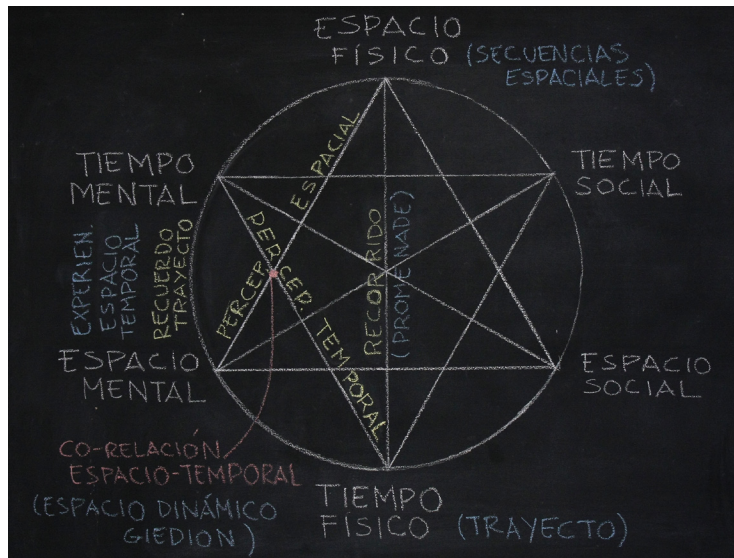 ESPACIO
FÍSICO (SECUENCIAS
ESPACIALES)
TIEMPO
MENTAL
TIEMPO
SOCIAL
PERCEP. ESPACIAL
PERCEP. TEMPORAL
RECORRIDO
(PROMENADE)
EXPERIEN.
ESPACIO
TEMPORAL
RECUERDO
TRAYECTO
ESPACIO
MENTAL
ESPACIO
SOCIAL
CO-RELACIÓN
ESPACIO-TEMPORAL
(ESPACIO DINÁMICO
GIEDION)
TIEMPO
FÍSICO (TRAYECTO)